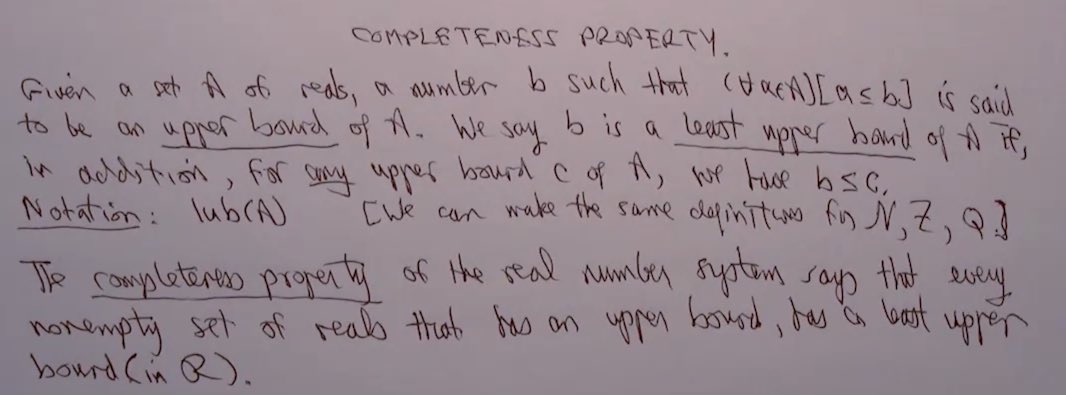 COMPLETENESS PROPERTY.
Given a set A of reals, a number b such that (∀a∈A)[a≤b] is said
to be an upper bound of A. We say b is a least upper bound of A if,
in addition, for any upper bound c of A, we have b≤c.
Notation: lub(A) [We can make the same definitions for N, Z, Q.]
The completeness property of the real number system says that every
nonempty set of reals that has an upper bound, has a least upper
bound (in R).